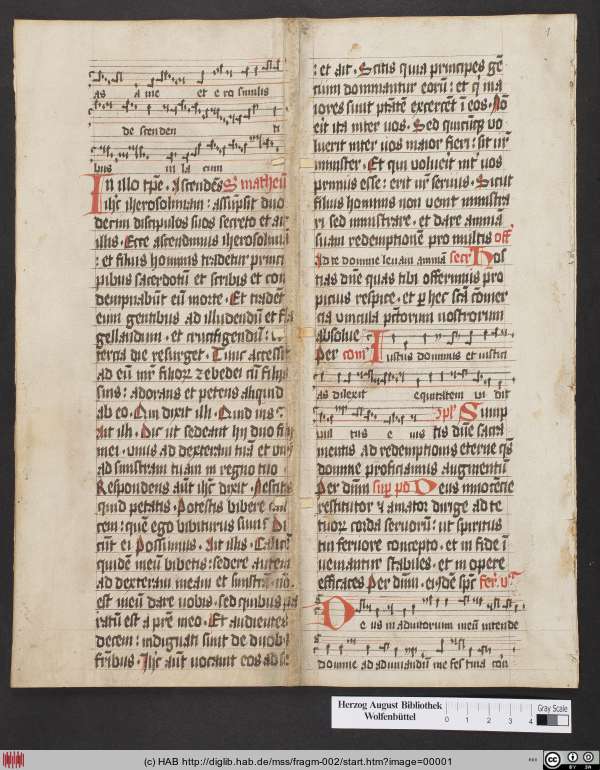 as a me et ero similis
descenden ti
bus in la cum
In illo tp̄e. Ascendēs S matheū
ih̄c iherosolimam: assūpsit duo
decim discipulos suos secreto et ait
illis. Ecce ascendimus iherosolimā
: et filius hominis tradetur princi
pibus sacerdotū et scribis et con
dempnabūt eū morte. Et tradēt
eum gentibus ad illudendū et fla
gellandum. et crucifigendū:
tercia die resurget. Tunc accessit
ad eū mr̄ filiorꝝ zebedei cū filijs
suis: adorans et petens aliquid
ab eo. Qui dixit illi. Quid uis
Ait illi. Dic ut sedeant hij duo filij
mei. unus ad dexteram tuā et un
ad sinistram tuam in regno tuo
Respondens aūt ih̄c dixit. Nescitis
quid petatis. Potestis bibere ca
licem: quē ego bibiturus sum: Di
cūt ei Possumus. Ait illis. Calicē
quidē meū bibetis: sedere autem
ad dexteram meam et sinistrā. nō
est meū dare uobis. sed quibus pa
ratū est a pr̄e meo. Et audientes
decem: indignati sunt de duob;
fr̄ibus. Ih̄c aūt uocauit eos ad se
1
: et ait. Scitis quia principes gē
cium dominantur eorū: et q̇ ma
iores sunt ptātē excercēt ī eos. Nō
eīt ita inter uos. Sed quicūqꝫ vo
luerit inter vos maior fieri: sit ur̄
minister. Et qui voluerit int̄ uos
primus esse: erit ur̄ seruus. Sicut
filius hominis non venit ministra
ri sed ministrare. et dare animā
suam redemptionē pro multis off̄
Ad te domine leuaui animā secr̄ Hos
tias dn̄e quas tibi offerimus pro
picius respice. et p̱ hec sc̄ā cōmer
cia vincula pctōrum nostrorum
absolue
Per com̄ Iustus dominus et iustici
as dilexit equitatem ui dit
vul tus e ius 9pl̄ Sump
tis dn̄e sacra
mentis ad redemptionis eterne qs̄
domine proficiamus augmentū
Per dn̄m sup̱ po Deus innocēcie
restitutor ⁊ amator dirige ad te
tuorꝝ corda seruorū: ut spiritus
tui feruore concepto. et in fide ī
ueniantur stabiles. et in opere
efficaces Per dn̄m. eiꝯdē sp̄c fer̄. v.ᵗᵃ
Deus in adiutorium meū intende
domine ad adiuuandū me festina con
Herzog August Bibliothek
Wolfenbüttel
0 1 2 3 4
Gray Scale
(c) HAB http://diglib.hab.de/mss/fragm-002/start.htm?image=00001
cc BY SA